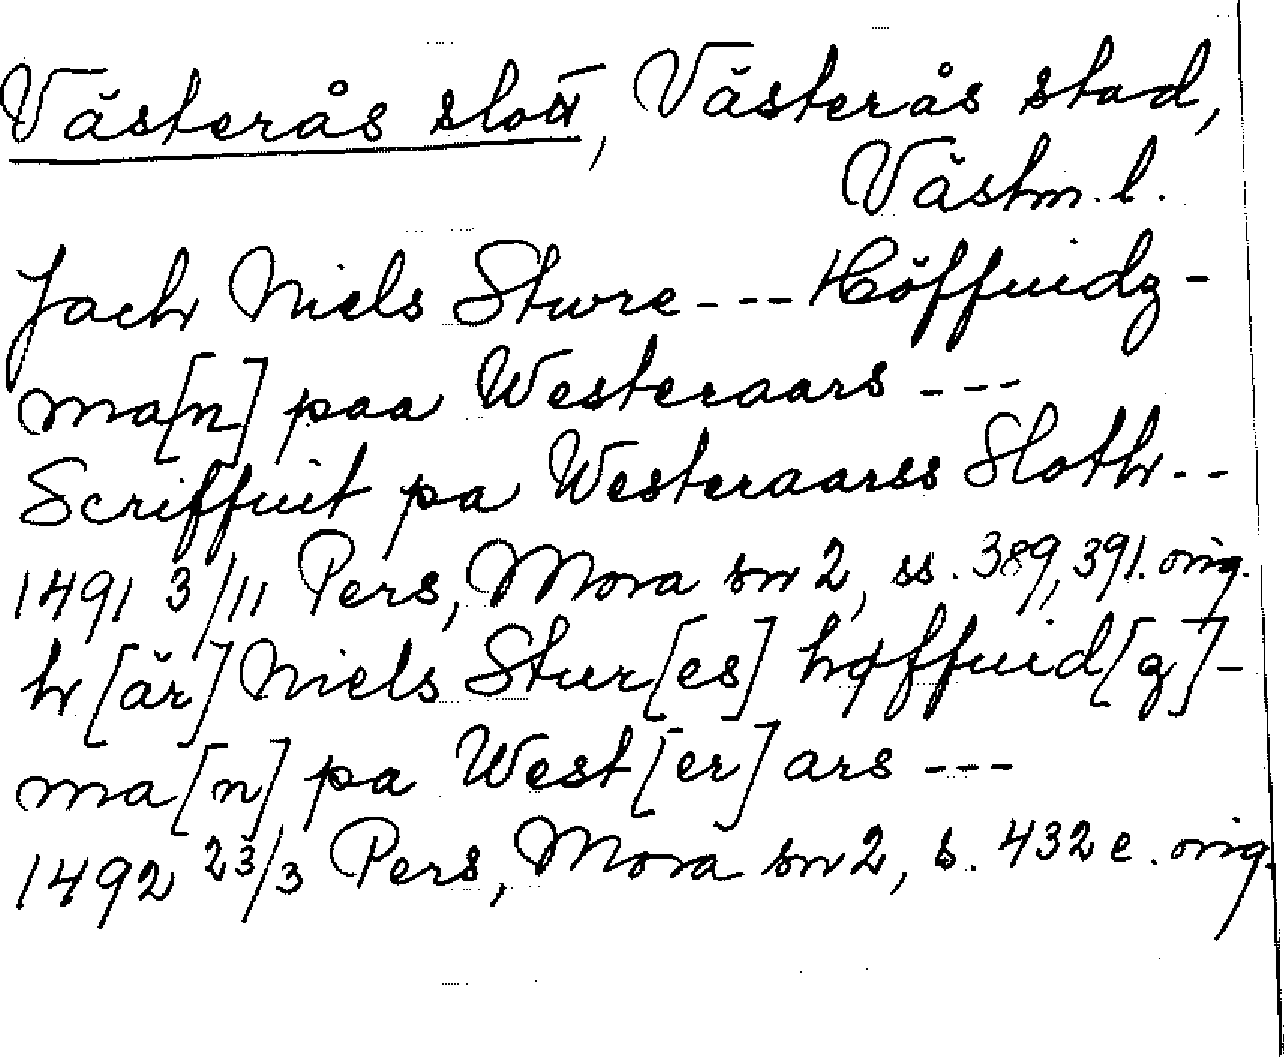 Västerås slott, Västerås stad,
Västm. l.
Jach Niels Sture --- Höffuidz-
ma[n] paa Westeraars ---
Scriffuit pa Westeraarss Sloth --
1491 3/11 Pers, Mora sn 2, ss. 389, 391. orig.
h[är] Niels Stur[es] høffuid[z]-
ma[n] pa West[er]ars ---
1492 23/3 Pers, Mora sn 2, s. 432 e. orig.